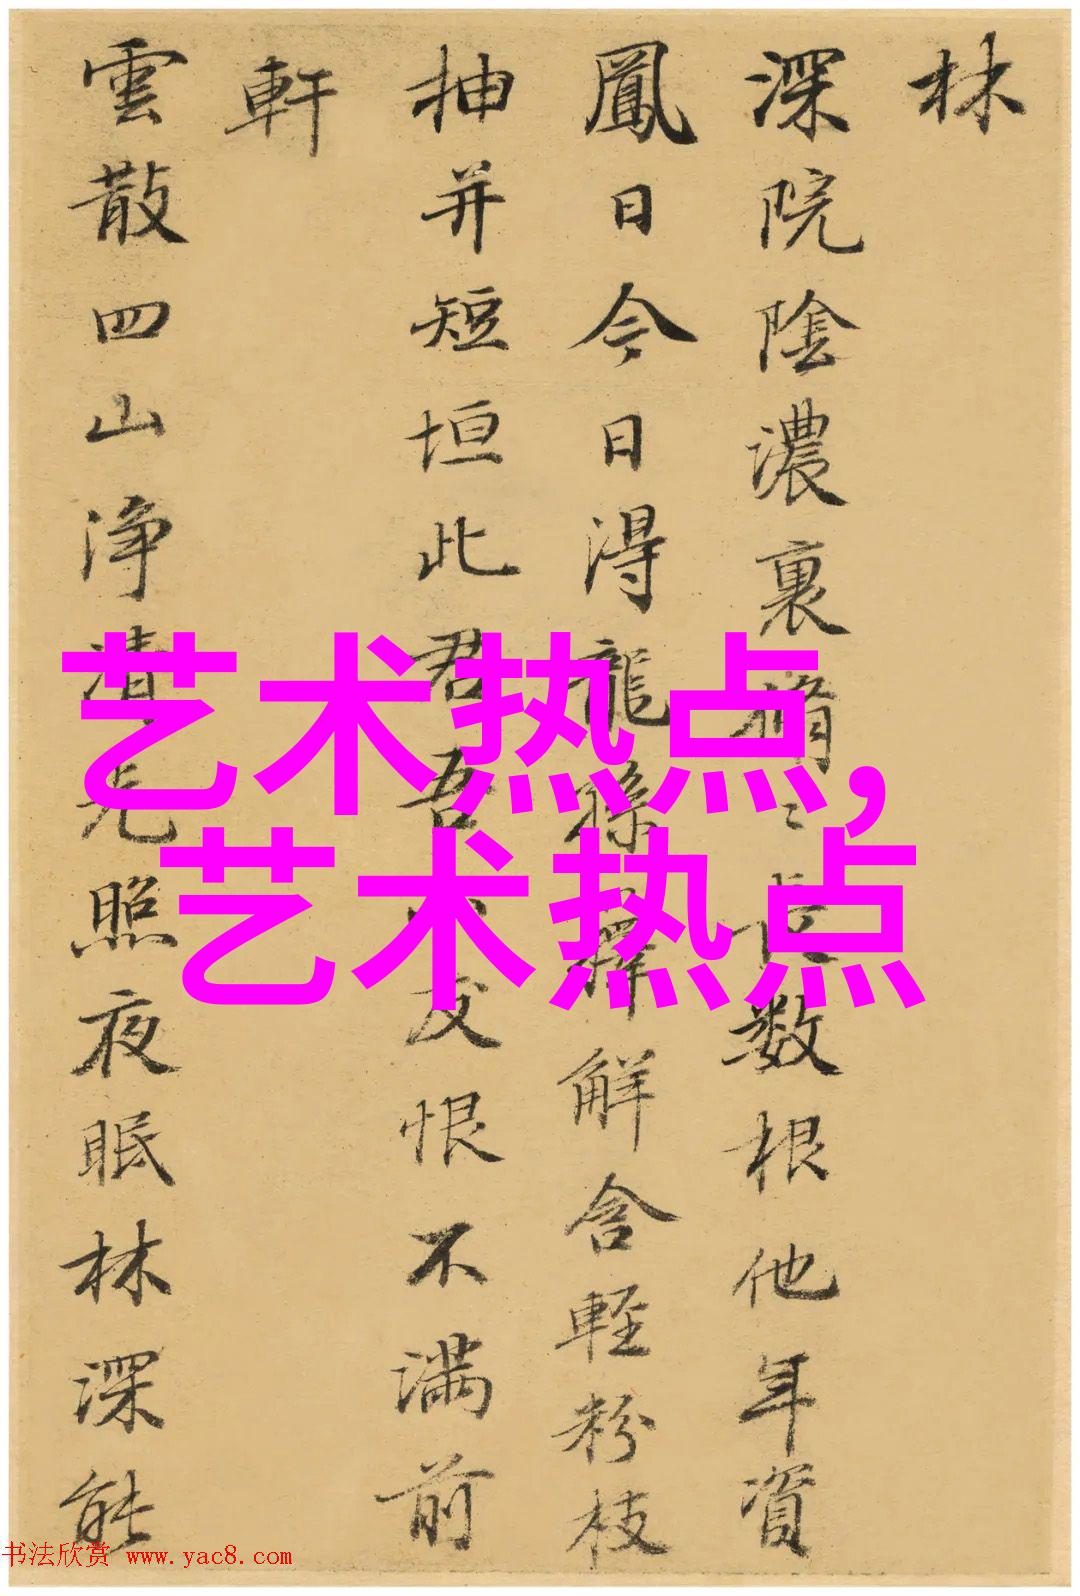 林
深院陰濃裏脩〻長数根他年資
鳳日今日得龍孫擇解含輕粉枝
抽并短垣此君吾友恨不滿前
軒
雲散四山浄清光照夜眠林深能
艺术热点,
艺术热点
书法欣赏 www.yac8.com